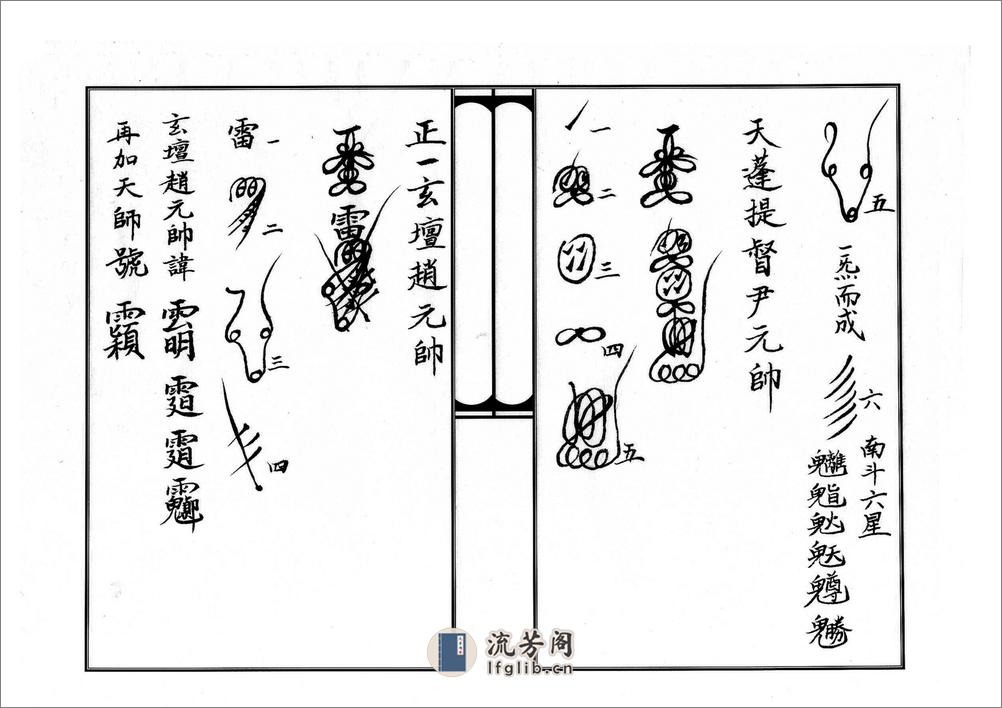 五
一炁而成
六
南斗六星
天蓬提督尹元帥
一
二
三
四
五
正一玄壇趙元帥
雷
雷一
二
三
四
玄壇趙元帥諱
再加天師號
流芳阁
lfglib.cn